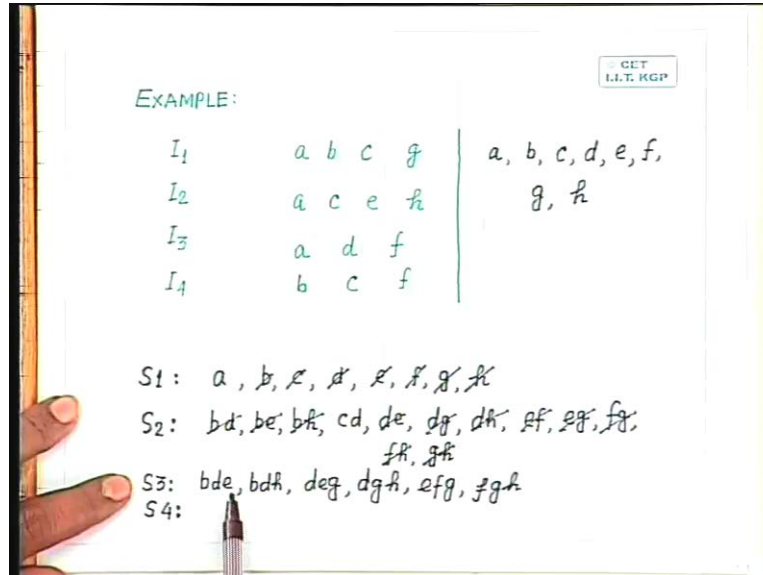 © CET
I.I.T. KGP
EXAMPLE:
I1 a b c g a, b, c, d, e, f,
I2 a c e h g, h
I3 a d f
I4 b c f
S1: a, b, c, d, e, f, g, h
S2: bd, be, bh, cd, de, dg, dh, ef, eg, fg,
fh, gh
S3: bde, bdh, deg, dgh, efg, fgh
S4: